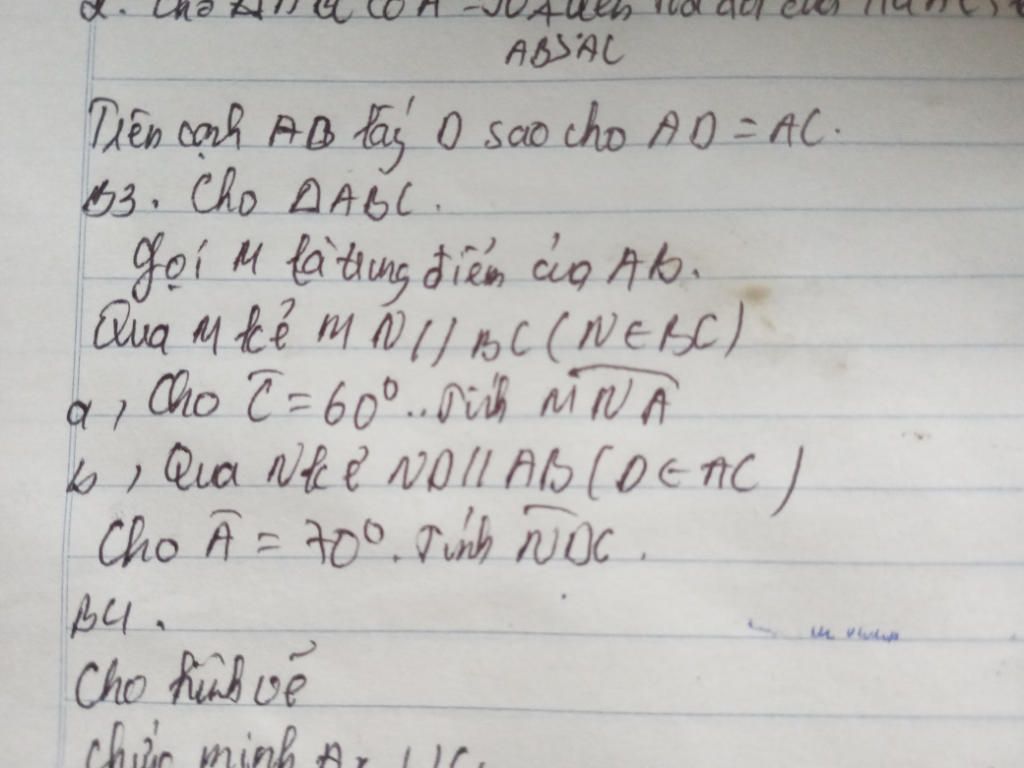 2. Cho
AB > AC
Trên cạnh AB lấy D sao cho AD = AC.
B3. Cho ΔABC.
Gọi M là trung điểm của AB.
Qua M kẻ MN // BC (N ∈ BC)
a, Cho Ĉ = 60°.. Tính MNA
b, Qua N kẻ ND // AB (D ∈ AC)
Cho Â = 70°. Tính NDC.
B4.
Cho hình vẽ
Chứng minh Ax //